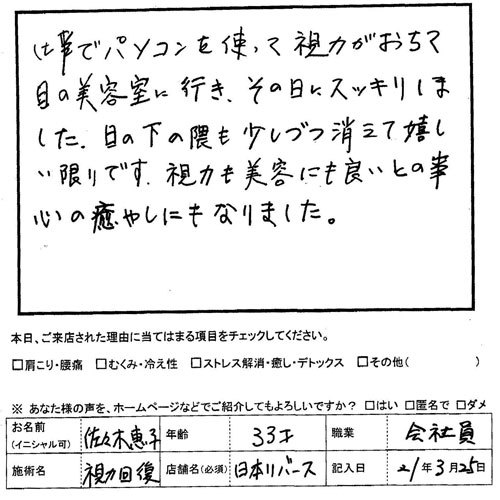 仕事でパソコンを使って視力がおちて
目の美容室に行き、その日にスッキリしま
した。目の下の隈も少しづつ消えて嬉し
い限りです。視力も美容にも良いとの事
心の癒やしにもなりました。
本日、ご来店された理由に当てはまる項目をチェックしてください。
□肩こり・腰痛 □むくみ・冷え性 □ストレス解消・癒し・デトックス □その他( )
※ あなた様の声を、ホームページなどでご紹介してもよろしいですか? □はい □匿名で □ダメ
お名前 (イニシャル可) 佐々木恵子 年齢 33才 職業 会社員
施術名 視力回復 店舗名(必須) 日本リバース 記入日 21年3月25日